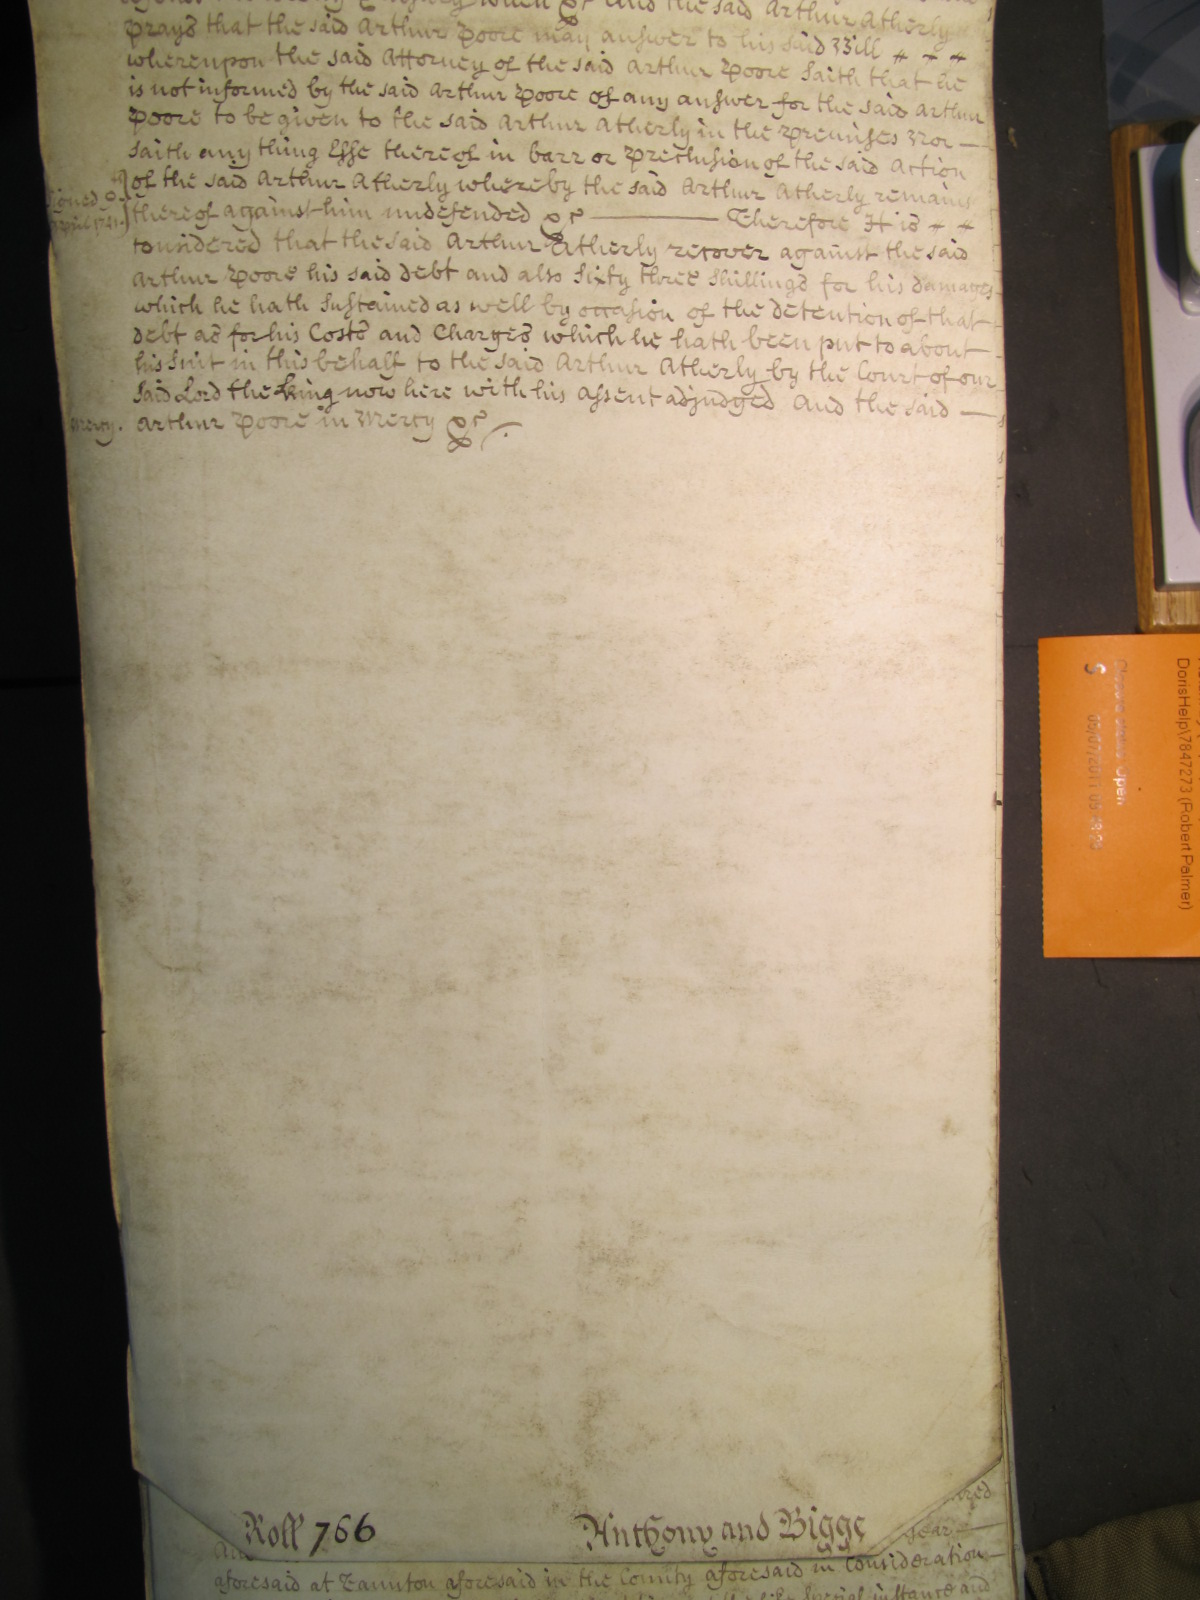 and the said Arthur Atherly
prays that the said Arthur Poore may answer to his said Bill
whereupon the said Attorney of the said Arthur Poore saith that he
is not informed by the said Arthur Poore of any answer for the said Arthur
Poore to be given to the said Arthur Atherly in the premises Nor —
saith any thing Else thereof in barr or preclusion of the said Action
of the said Arthur Atherly whereby the said Arthur Atherly remains
thereof against him undefended &c ——— Therefore It is
Considered that the said Arthur Atherly recover against the said
Arthur Poore his said debt and also Sixty three shillings for his damages
which he hath Sustained as well by occasion of the detention of that
debt as for his Costs and Charges which he hath been put to about
his Suit in this behalf to the said Arthur Atherly by the Court of our
said Lord the King now here with his assent adjudged And the said —
Arthur Poore in Mercy &c
Signed
April 1741
Mercy.
Roll 766
Anthony and Bigge
year
aforesaid at Taunton aforesaid in the County aforesaid in Consideration
like special instance and
DorisHelp\7847273 (Robert Palmer)
Open
S 05/07/2011